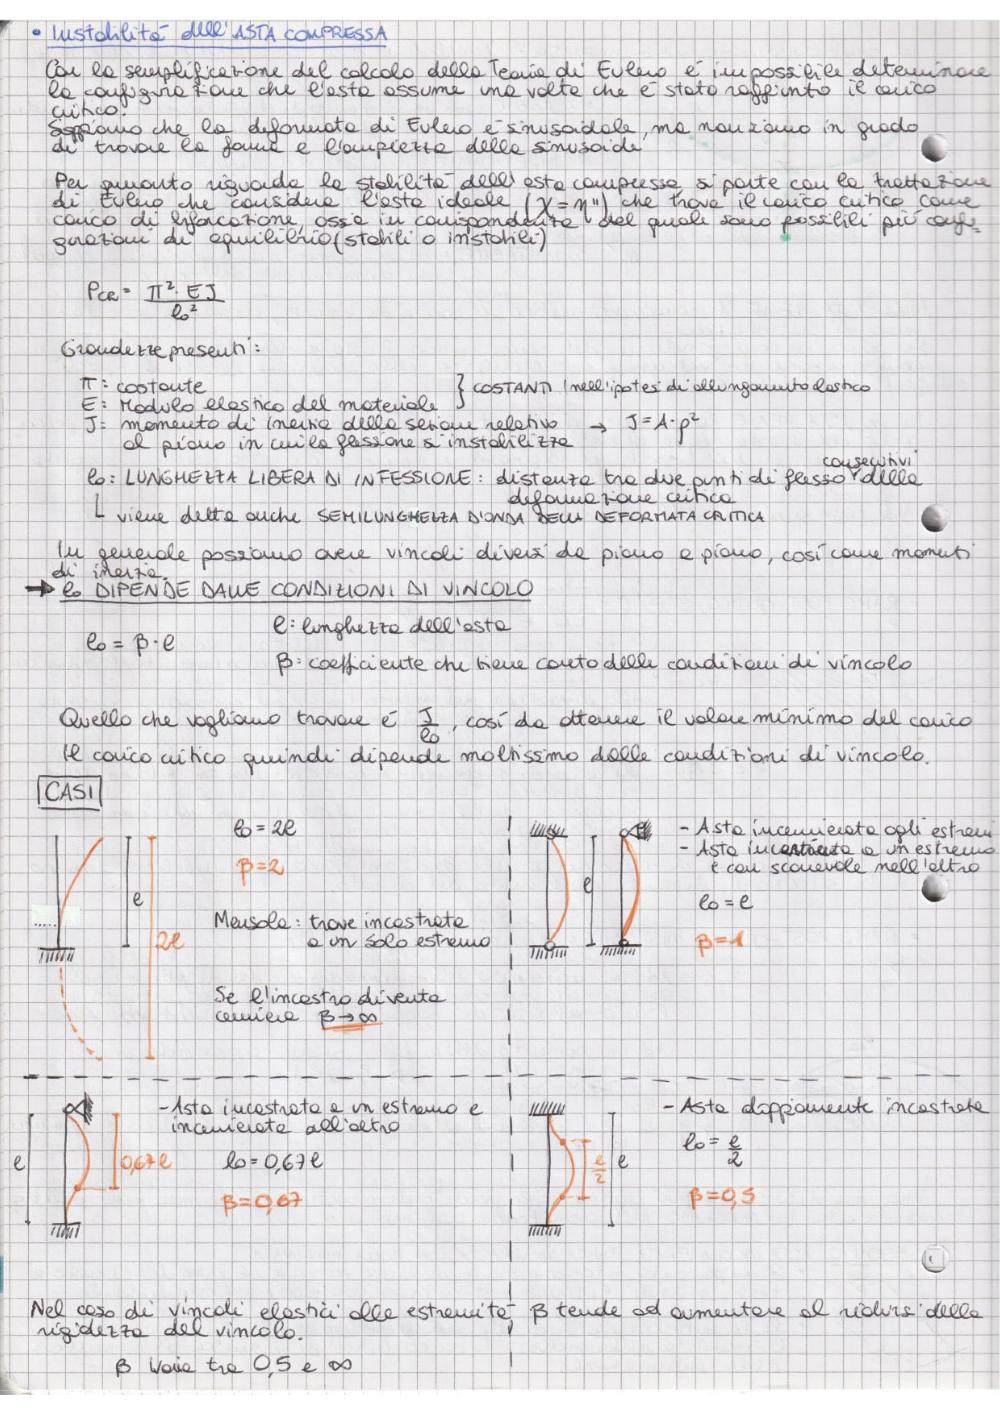 • Instabilità dell'ASTA COMPRESSA
Con la semplificazione del calcolo della Teoria di Eulero é impossibile determinare
la configurazione che l'asta assume una volta che é stato raggiunto il carico
critico.
Sappiamo che la deformata di Eulero é sinusoidale, ma non siamo in grado
di trovare la forma e l'ampiezza della sinusoide
Per quanto riguarda la stabilità dell'asta compressa si parte con la trattazione
di Eulero che considera l'asta ideale (χ=η'') che trova il carico critico come
carico di biforcazione, ossia in corrispondenza del quale sono possibili più confi-
gurazioni di equilibrio (stabili o instabili)
Pcr = π²·EJ / l₀²
Grandezze presenti:
π: costante
E: Modulo elastico del materiale } COSTANTI (nell'ipotesi di allungamento elastico
J: momento di inerzia della sezione relativo → J=A·ρ²
al piano in cui la flessione si instabilizza
l₀: LUNGHEZZA LIBERA DI INFESSIONE: distanza tra due punti di flesso consecutivi della
deformazione critica
└ viene detta anche SEMILUNGHEZZA D'ONDA DELLA DEFORMATA CRITICA
In generale possiamo avere vincoli diversi da piano a piano, così come momenti
di inerzia.
→ l₀ DIPENDE DALLE CONDIZIONI DI VINCOLO
l₀ = β·l
l: lunghezza dell'asta
β: coefficiente che tiene conto delle condizioni di vincolo
Quello che vogliamo trovare é J/l₀, così da ottenere il valore minimo del carico
Il carico critico quindi dipende moltissimo dalle condizioni di vincolo.
CASI
l
2l
l₀ = 2l
β=2
Mensola: trave incastrata
a un solo estremo
Se l'incastro diventa
cerniera β→∞
l
- Asta incernierata agli estremi
- Asta incastrata a un estremo
e con scorrevole nell'altro
l₀ = l
β=1
l
0,67l
- Asta incastrata a un estremo e
incernierata all'altro
l₀ = 0,67l
β=0,67
l/2
l
- Asta doppiamente incastrata
l₀ = l/2
β=0,5
Nel caso di vincoli elastici alle estremità, β tende ad aumentare al ridursi della
rigidezza del vincolo.
β varia tra 0,5 e ∞